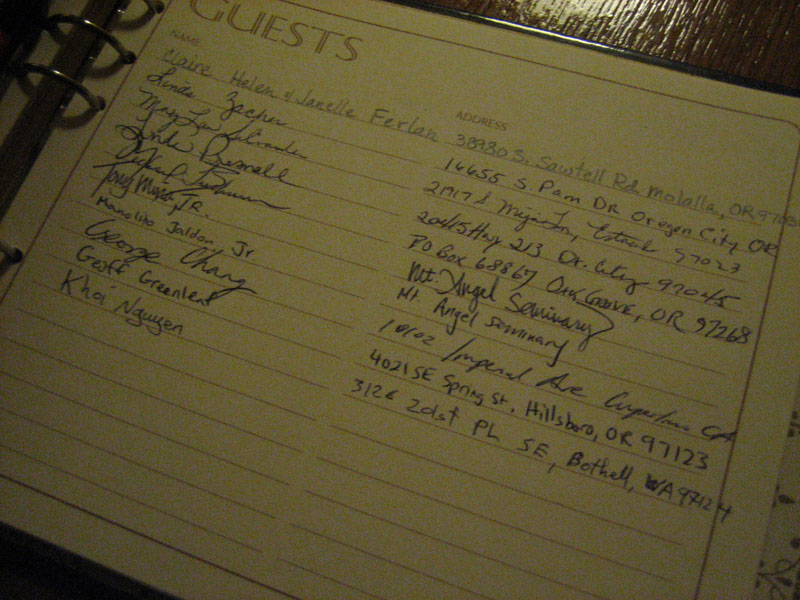 GUESTS
NAME
ADDRESS
Claire Helen & Janelle Ferlan 38980 S. Sawtell Rd. Molalla, OR
Linda Zacher 16655 S. Pam DR Oregon City OR
May Lou 97023
Linda 20415 Hwy 213 Or. City 97045
PO Box 68867 Oak Grove, OR 97268
Tony JR. Mt. Angel Seminary
Manolito Jaldon, Jr Mt. Angel Seminary
George Chang 10102 Imperial Ave Cupertino CA
Geoff Greenleaf 4021 SE Spring St. Hillsboro, OR 97123
Khoi Nguyen 3126 21st PL SE, Bothell, WA